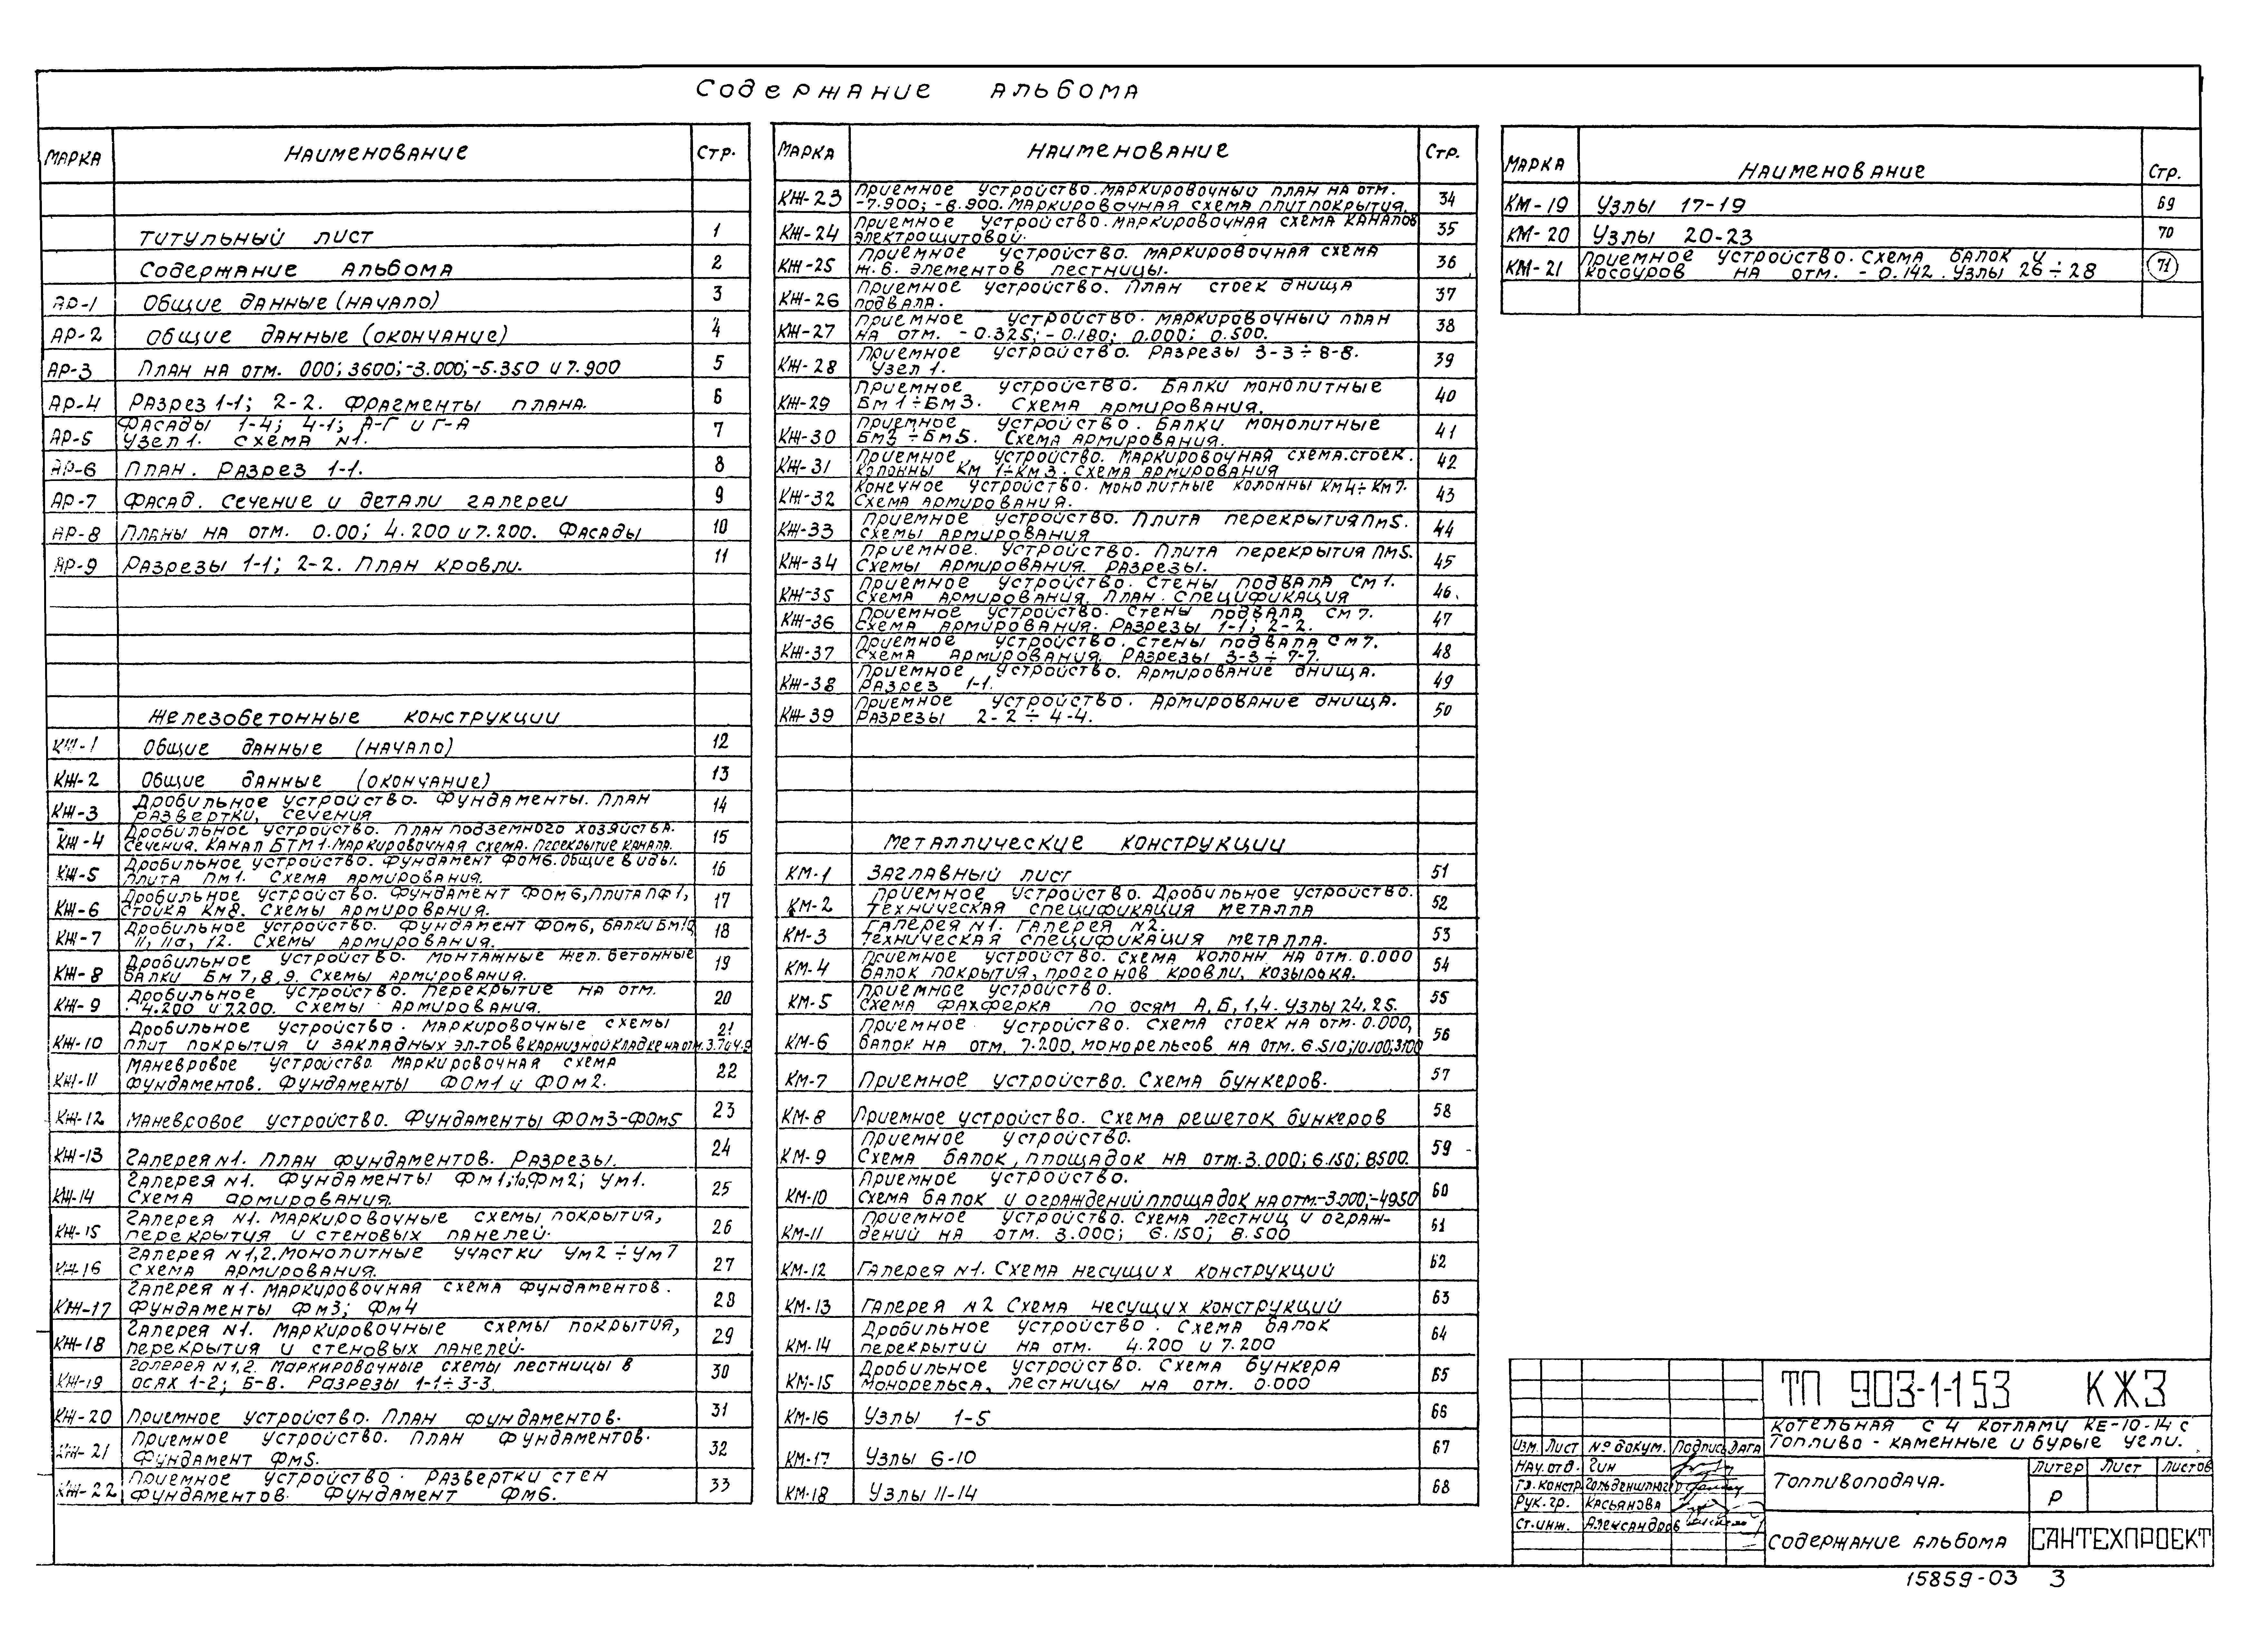 Содержание альбома
Марка Наименование Стр.
Титульный лист 1
Содержание альбома 2
АР-1 Общие данные (начало) 3
АР-2 Общие данные (окончание) 4
АР-3 План на отм. 000; 3600; -3.000; -5.350 и 7.900 5
АР-4 Разрез 1-1; 2-2. Фрагменты плана. 6
АР-5 Фасады 1-4; 4-1; А-Г и Г-А
Узел 1. Схема N1. 7
АР-6 План. Разрез 1-1. 8
АР-7 Фасад. Сечение и детали галереи 9
АР-8 Планы на отм. 0.00; 4.200 и 7.200. Фасады 10
АР-9 Разрезы 1-1; 2-2. План кровли. 11
Железобетонные конструкции
КЖ-1 Общие данные (начало) 12
КЖ-2 Общие данные (окончание) 13
КЖ-3 Дробильное устройство. Фундаменты. План
развертки, сечения 14
КЖ-4 Дробильное устройство. План подземного хозяйства.
Сечения. Канал БТМ1. Маркировочная схема. Перекрытие канала. 15
КЖ-5 Дробильное устройство. Фундамент ФОм6. Общие виды.
Плита Пм1. Схема армирования. 16
КЖ-6 Дробильное устройство. Фундамент ФОм6, плита ПФ1,
стойка Км8. Схемы армирования. 17
КЖ-7 Дробильное устройство. Фундамент ФОм6, балки Бм10,
11, 11а, 12. Схемы армирования. 18
КЖ-8 Дробильное устройство. Монтажные жел. бетонные
балки Бм 7, 8, 9. Схемы армирования. 19
КЖ-9 Дробильное устройство. Перекрытие на отм.
4.200 и 7.200. Схемы армирования. 20
КЖ-10 Дробильное устройство. Маркировочные схемы
плит покрытия и закладных эл-тов в карнизной кладке на отм. 21
КЖ-11 Маневровое устройство. Маркировочная схема
фундаментов. Фундаменты ФОм1 и ФОм2. 22
КЖ-12 Маневровое устройство. Фундаменты ФОм3-ФОм5 23
КЖ-13 Галерея N1. План фундаментов. Разрезы. 24
КЖ-14 Галерея N1. Фундаменты Фм1; Фм2; Ум1.
Схема армирования. 25
КЖ-15 Галерея N1. Маркировочные схемы покрытия,
перекрытия и стеновых панелей. 26
КЖ-16 Галерея N1,2. Монолитные участки Ум2÷Ум7
Схема армирования. 27
КЖ-17 Галерея N1. Маркировочная схема фундаментов.
Фундаменты Фм3; Фм4 28
КЖ-18 Галерея N1. Маркировочные схемы покрытия,
перекрытия и стеновых панелей. 29
КЖ-19 Галерея N1,2. Маркировочные схемы лестницы в
осях 1-2; Б-В. Разрезы 1-1÷3-3. 30
КЖ-20 Приемное устройство. План фундаментов. 31
КЖ-21 Приемное устройство. План фундаментов.
Фундамент Фм5. 32
КЖ-22 Приемное устройство. Развертки стен
фундаментов. Фундамент Фм6. 33
Марка Наименование Стр.
КЖ-23 Приемное устройство. Маркировочный план на отм.
-7.900; -8.900. Маркировочная схема плит покрытия. 34
КЖ-24 Приемное устройство. Маркировочная схема каналов
электрощитовой. 35
КЖ-25 Приемное устройство. Маркировочная схема
ж.б. элементов лестницы. 36
КЖ-26 Приемное устройство. План стоек днища
подвала. 37
КЖ-27 Приемное устройство. Маркировочный план
на отм. -0.325; -0.180; 0.000; 0.500. 38
КЖ-28 Приемное устройство. Разрезы 3-3÷8-8.
Узел 1. 39
КЖ-29 Приемное устройство. Балки монолитные
Бм1÷Бм3. Схема армирования. 40
КЖ-30 Приемное устройство. Балки монолитные
Бм3÷Бм5. Схема армирования. 41
КЖ-31 Приемное устройство. Маркировочная схема. стоек.
Колонны Км 1÷Км3. Схема армирования 42
КЖ-32 Конечное устройство. Монолитные колонны Км4÷Км7.
Схема армирования. 43
КЖ-33 Приемное устройство. Плита перекрытия Пм5.
Схемы армирования 44
КЖ-34 Приемное устройство. Плита перекрытия Пм5.
Схемы армирования. Разрезы. 45
КЖ-35 Приемное устройство. Стены подвала См1.
Схема армирования. План. Спецификация 46
КЖ-36 Приемное устройство. Стены подвала См7.
Схема армирования. Разрезы 1-1; 2-2. 47
КЖ-37 Приемное устройство. Стены подвала См7.
Схема армирования. Разрезы 3-3÷7-7. 48
КЖ-38 Приемное устройство. Армирование днища.
Разрез 1-1. 49
КЖ-39 Приемное устройство. Армирование днища.
Разрезы 2-2÷4-4. 50
Металлические конструкции
КМ-1 Заглавный лист 51
КМ-2 Приемное устройство. Дробильное устройство.
Техническая спецификация металла 52
КМ-3 Галерея N1. Галерея N2.
Техническая спецификация металла. 53
КМ-4 Приемное устройство. Схема колонн на отм. 0.000
балок покрытия, прогонов кровли, козырька. 54
КМ-5 Приемное устройство.
Схема фахферка по осям А, Б, 1, 4. Узлы 24, 25. 55
КМ-6 Приемное устройство. Схема стоек на отм. 0.000,
балок на отм. 7.200, монорельсов на отм. 6.510; 10.100; 3.100 56
КМ-7 Приемное устройство. Схема бункеров. 57
КМ-8 Приемное устройство. Схема решеток бункеров 58
КМ-9 Приемное устройство.
Схема балок, площадок на отм. 3.000; 6.150; 8500. 59
КМ-10 Приемное устройство.
Схема балок и ограждений площадок на отм -3.000; -4950 60
КМ-11 Приемное устройство. Схема лестниц и ограж-
дений на отм. 3.000; 6.150; 8.500 61
КМ-12 Галерея N1. Схема несущих конструкций 62
КМ-13 Галерея N2 Схема несущих конструкций 63
КМ-14 Дробильное устройство. Схема балок
перекрытий на отм. 4.200 и 7.200 64
КМ-15 Дробильное устройство. Схема бункера
монорельса, лестницы на отм. 0.000 65
КМ-16 Узлы 1-5 66
КМ-17 Узлы 6-10 67
КМ-18 Узлы 11-14 68
Марка Наименование Стр.
КМ-19 Узлы 17-19 69
КМ-20 Узлы 20-23 70
КМ-21 Приемное устройство. Схема балок и
косоуров на отм. -0.142. Узлы 26÷28 71
ТП 903-1-153 КЖ3
Котельная с 4 котлами КЕ-10-14с
Топливо - каменные и бурые угли.
Изм. Лист № докум. Подпись Дата
Нач. отд. Гин
Гл. констр. Гольденшлюгер
Рук. гр. Касьянова
Ст. инж. Александров
Топливоподача.
Литер Лист Листов
Р
Содержание альбома
САНТЕХПРОЕКТ
15859-03 3